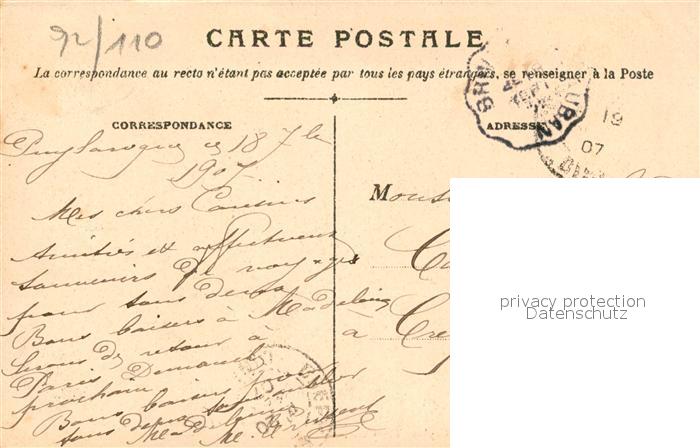 92/110
CARTE POSTALE
La correspondance au recto n'étant pas acceptée par tous les pays étrangers, se renseigner à la Poste
CORRESPONDANCE
ADRESSE
Puylaroque le 18 7bre
1907
Mes chers Cousins
Amitiés et affectueux
souvenirs de voyage
pour tous deux
Bons baisers à Madeleine
Serons de retour à
Paris Dimanche
prochain
Bons baisers pour
tous deux
UBAN
19
07
à
privacy protection
Datenschutz